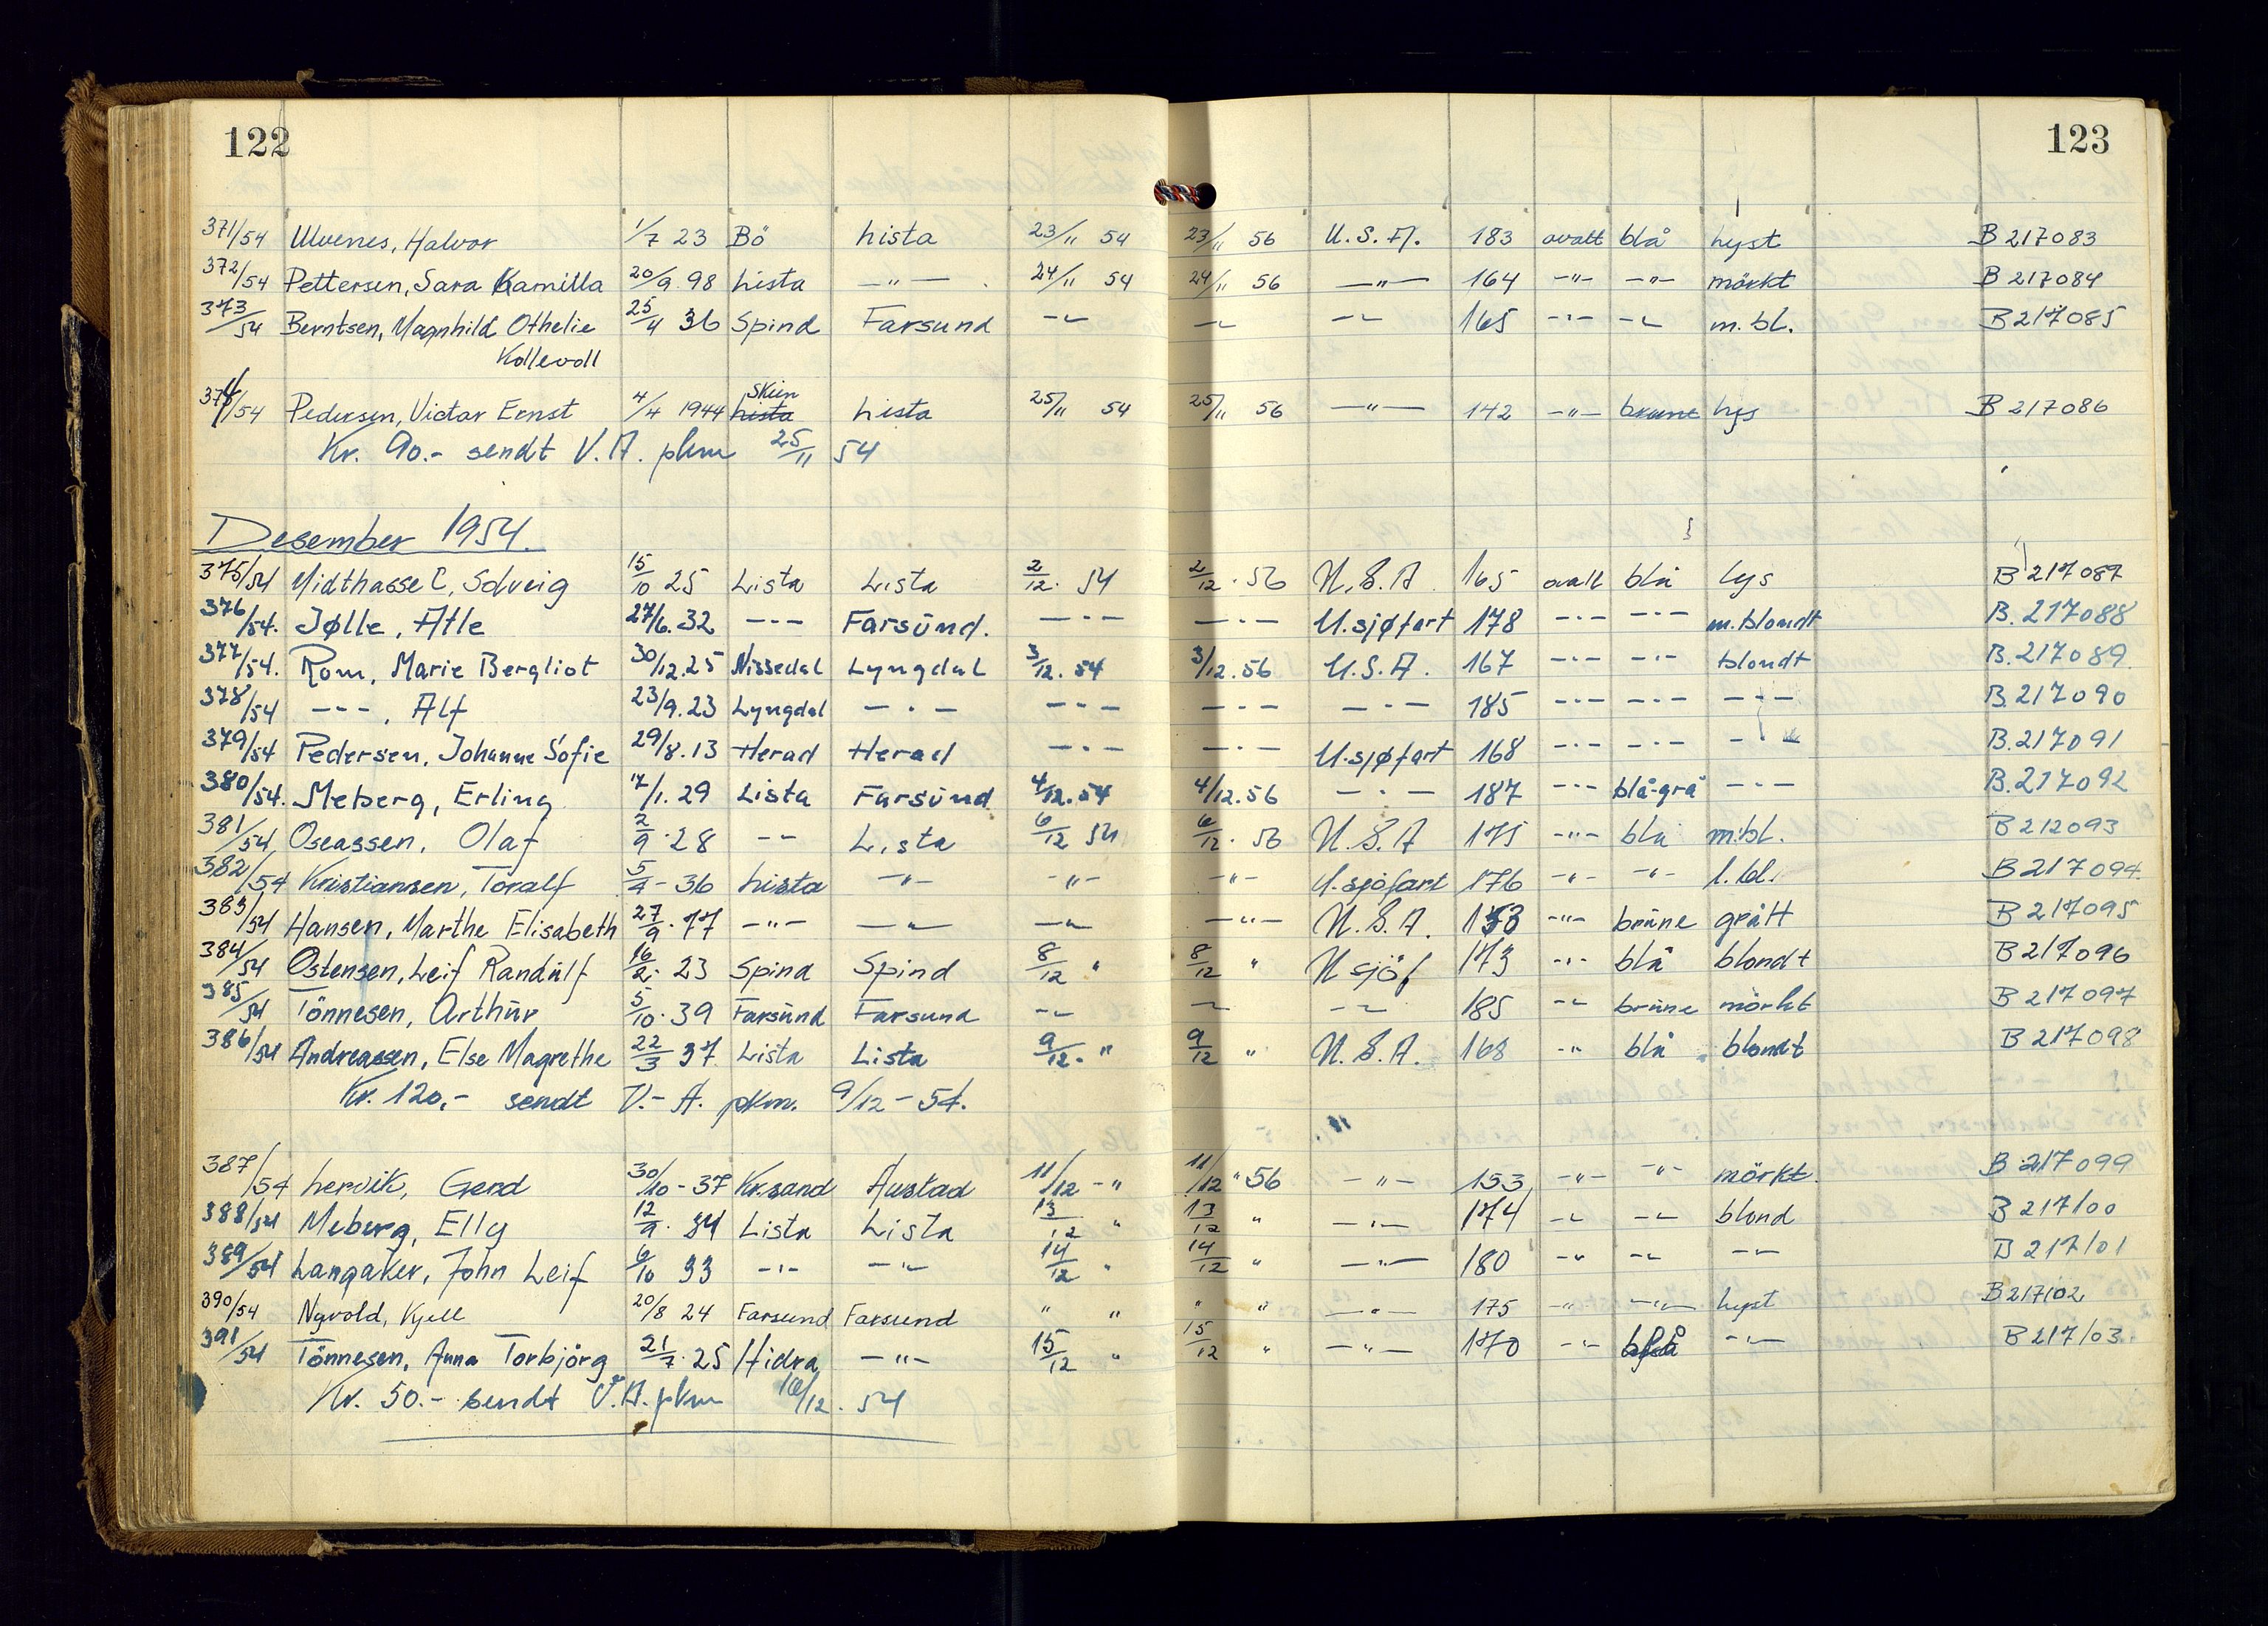 122
123
371/54 Ulvenes, Halvor 1/7 23 Bö Lista 23/11 54 23/11 56 U.S.A. 183 ovalt blå lyst B 217083
372/54 Pettersen, Sara Kamilla 20/9 98 Lista —"— 24/11 54 24/11 56 —"— 164 -"- -"- mörkt B 217084
373/54 Berntsen, Magnhild Othelie 25/4 36 Spind Farsund -"- -"- -"- 165 -"- -"- m.bl. B 217085
Kollevoll
Skien
374/54 Pedersen, Victor Ernst 4/4 1944 Lista Lista 25/11 54 25/11 56 —"— 142 -"- brune lys B 217086
Kr. 90.- sendt V.A. pkm 25/11 54
Desember 1954.
375/54 Midthassel, Solveig 15/10 25 Lista Lista 2/12. 54 2/12. 56 U.S.A. 165 ovalt blå lys B 217087
376/54. Jølle, Atle 27/6. 32 -"- Farsund. -"- -"- U.sjøfart 178 -"- -"- m.blondt B. 217088
377/54. Rom, Marie Bergliot 30/12.25 Nissedal Lyngdal 3/12. 54 3/12. 56 U.S.A. 167 -"- -"- blondt B. 217089.
378/54 -"-, Alf 23/9.23 Lyngdal -"- -"- -"- -"- 185 -"- -"- -"- B. 217090
379/54 Pedersen, Johanne Sofie 29/8.13 Herad Herad -"- -"- U.sjøfart 168 -"- -"- -"- B. 217091
380/54. Meberg, Erling 7/1. 29 Lista Farsund 4/12. 54 4/12. 56 -"- 187 -"- blå-grå -"- B. 217092
381/54 Oseassen, Olaf 2/9. 28 -"- Lista 6/12 54 6/12. 56 U.S.A 175 -"- blå m.bl. B 212093
382/54 Kristiansen, Toralf 5/4 - 36 Lista -"- -"- -"- U.sjöfart 176 -"- -"- l.bl. B 217094
383/54 Hansen, Marthe Elisabeth 27/9. 77 -"- -"- -"- -"- U.S.A. 153 -"- brune grått B 217095
384/54 Ostensen, Leif Randulf 16/2. 23 Spind Spind 8/12 " 8/12 " U sjöf 173 -"- blå blondt B 217096
385/54 Tönnesen, Arthur 5/10. 39 Farsund Farsund -"- -"- -"- 185 -"- brune mörkt B 217097
386/54 Andreassen, Else Magrethe 22/3 37 Lista Lista 9/12. " 9/12 " U.S.A. 168 -"- blå blondt B 217098
Kr. 120,- sendt V.-A. pkm. 9/12 - 54.
387/54 Lervik, Gerd 30/10 - 37 Kr.sand Austad 11/12 - " 11/12 " 56 -"- 153 -"- -"- mörkt. B 217099
388/54 Meberg, Elly 12/9. 34 Lista Lista 13/12 " 13/12 " -"- 174 -"- -"- blond B 217100
389/54 Langaker, John Leif 6/10 33 -"- -"- 14/12 " 14/12 " -"- 180 -"- -"- -"- B 217101
390/54 Nyvold, Kjell 20/8 24 Farsund Farsund " " " " -"- 175 -"- -"- lyst B 217102
391/54 Tönnesen, Anna Torbjörg 21/7. 25 Hidra -"- 15/12 " 15/12 " -"- 170 -"- blå -"- B 217103.
Kr. 50.- sendt V.A. pkm 16/12. 54